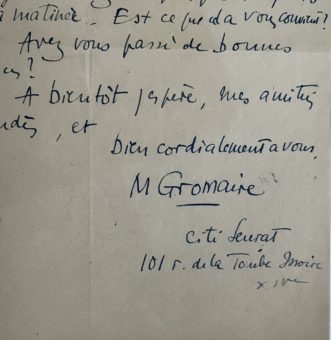 matinée. Est ce que cela vous convient?
Avez vous passé de bonnes
ces?
A bientôt j'espère, mes amitiés
et
bien cordialement à vous,
M Gromaire
Cité Seurat
101 r. de la Tombe Issoire